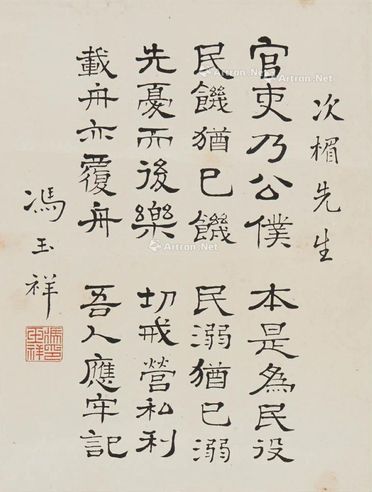 次楣先生
官吏乃公僕 本是為民役
民饑猶己饑 民溺猶己溺
先憂而後樂 切戒營私利
載舟亦覆舟 吾人應牢記
馮玉祥
Artron.Net
Artron.Net
Artron.Net
Artron.Net
Artron.Net